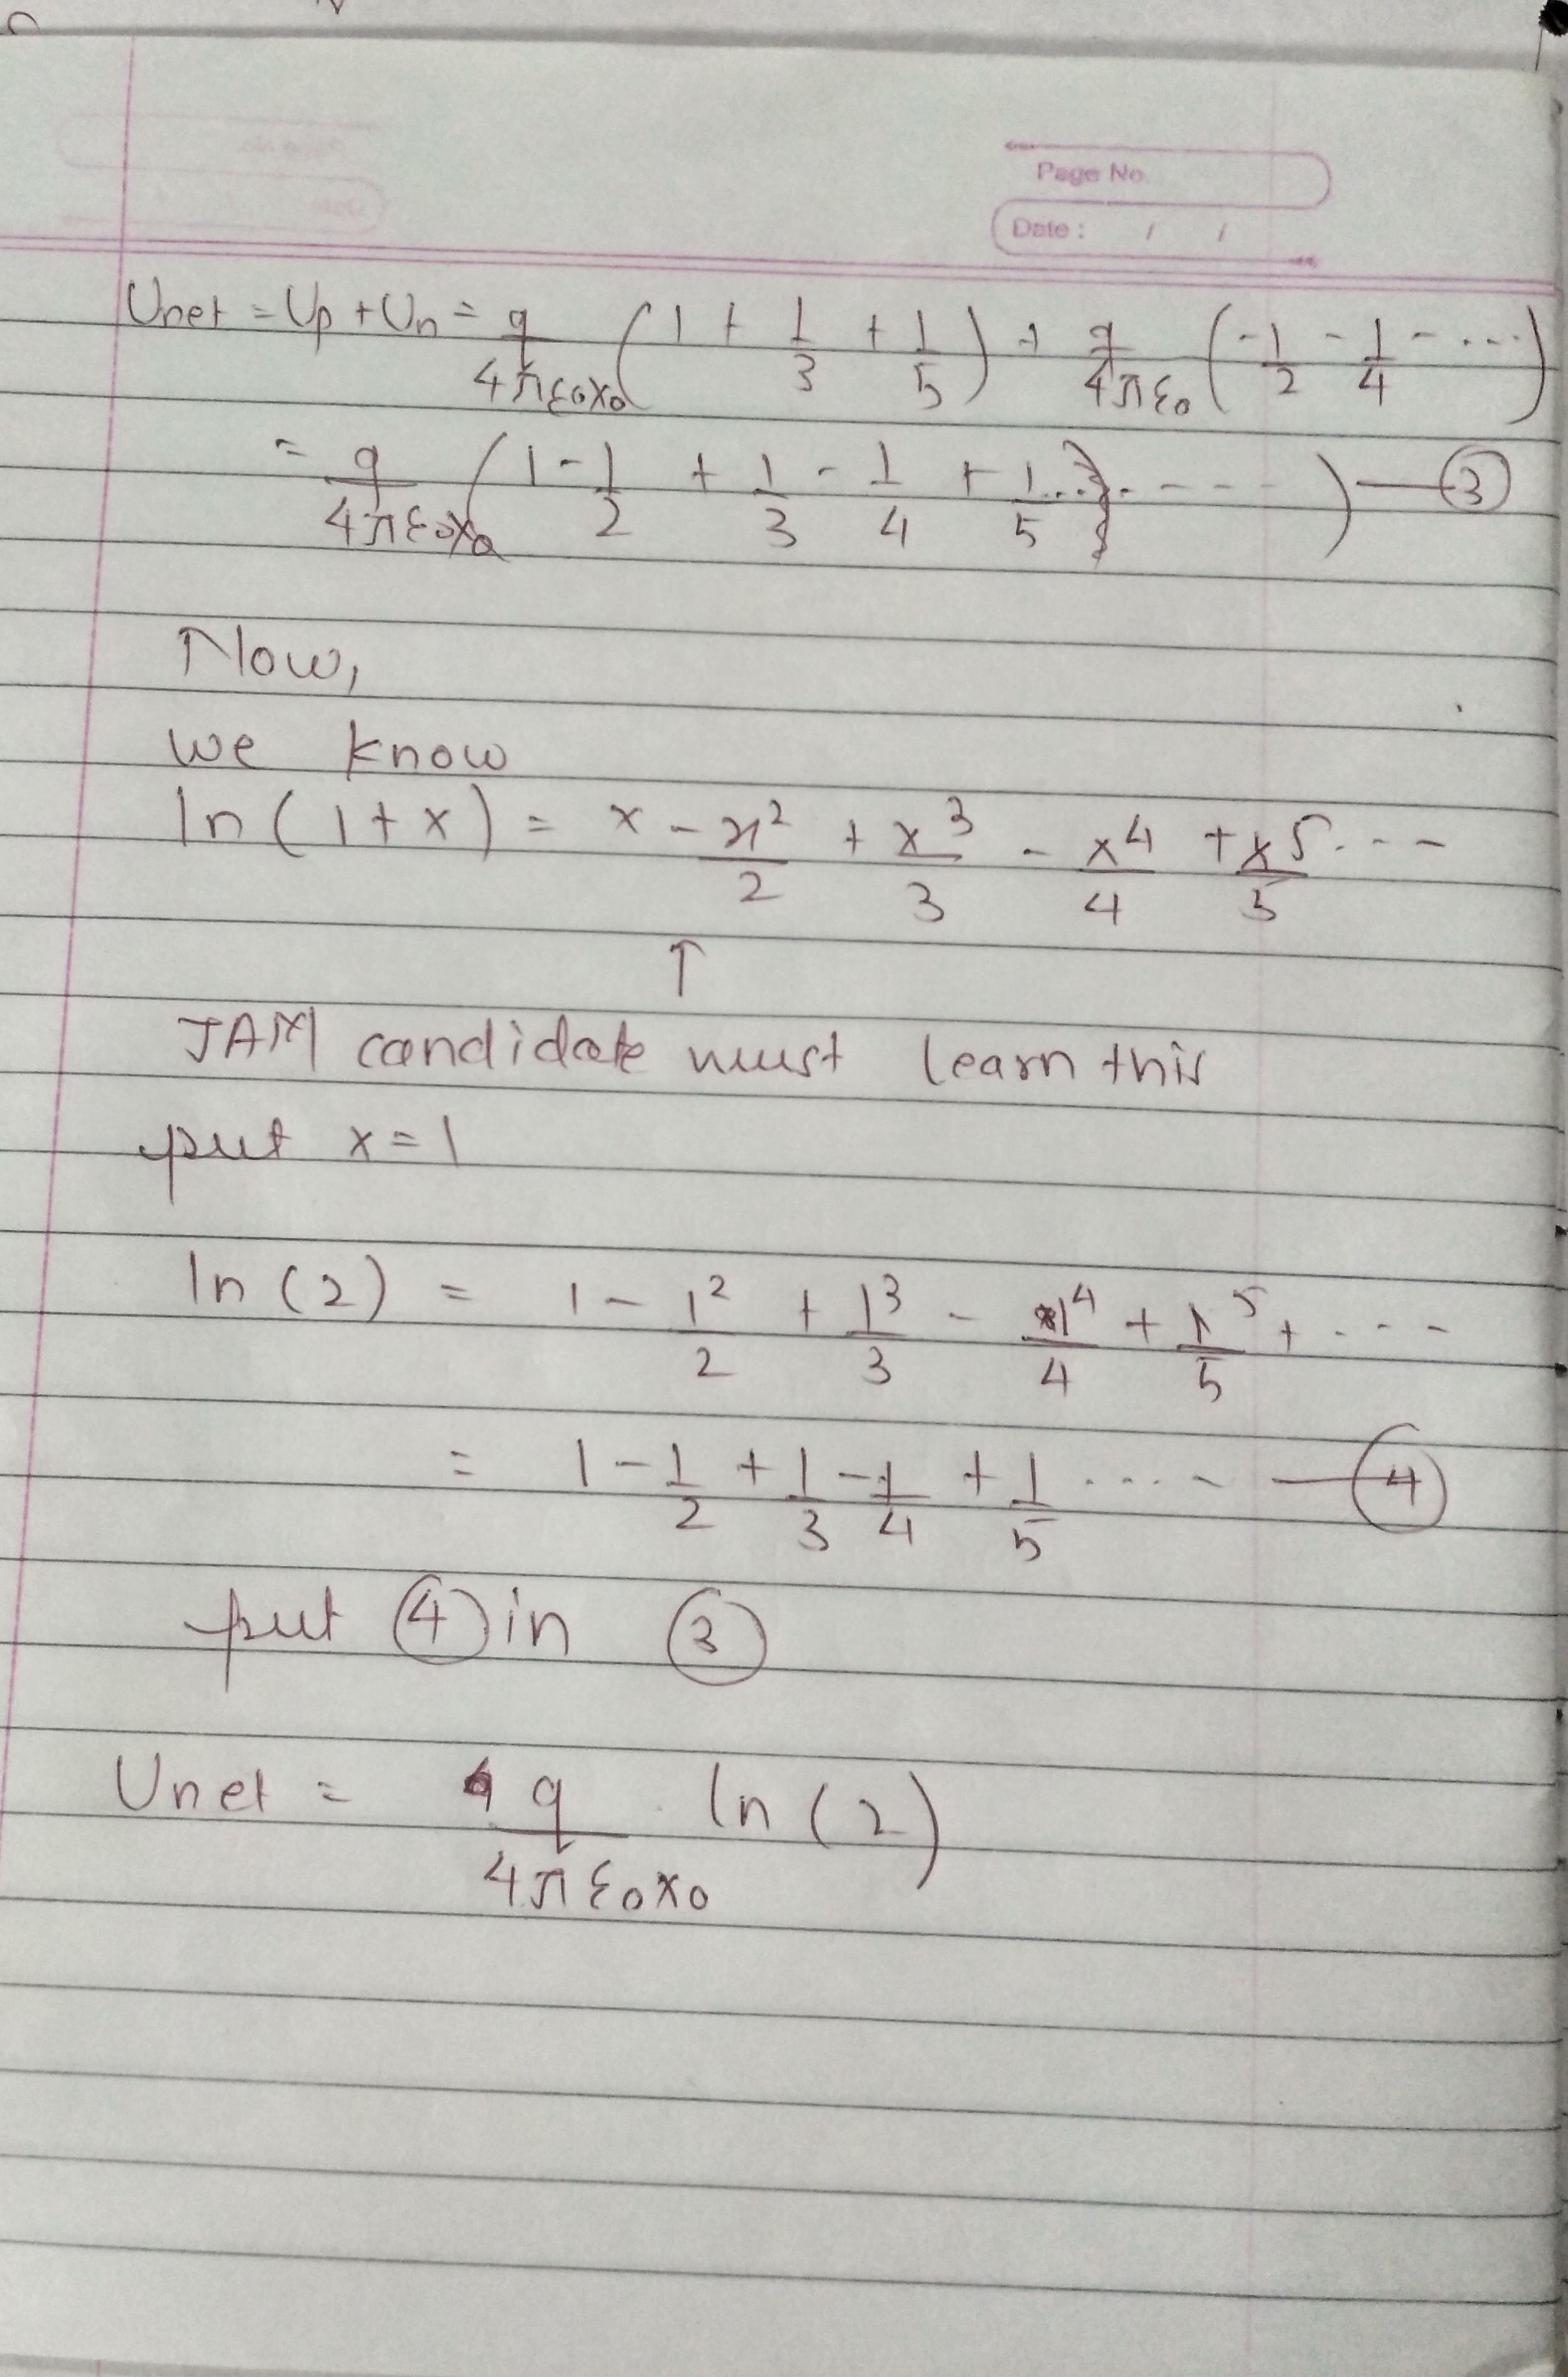 Page No.
Date : / /
Unet = Up + Un = q/4πε₀x₀ (1 + 1/3 + 1/5) + q/4πε₀ (-1/2 - 1/4 - ...)
= q/4πε₀x₀ (1 - 1/2 + 1/3 - 1/4 + 1/5 ... - - - -) — ③
Now,
we know
ln(1+x) = x - x²/2 + x³/3 - x⁴/4 + x⁵/5 - - -
↑
JAM candidate must learn this
put x = 1
ln(2) = 1 - 1²/2 + 1³/3 - 1⁴/4 + 1⁵/5 + - - -
= 1 - 1/2 + 1/3 - 1/4 + 1/5 ..... — ④
put ④ in ③
Unet = q/4πε₀x₀ . ln(2)